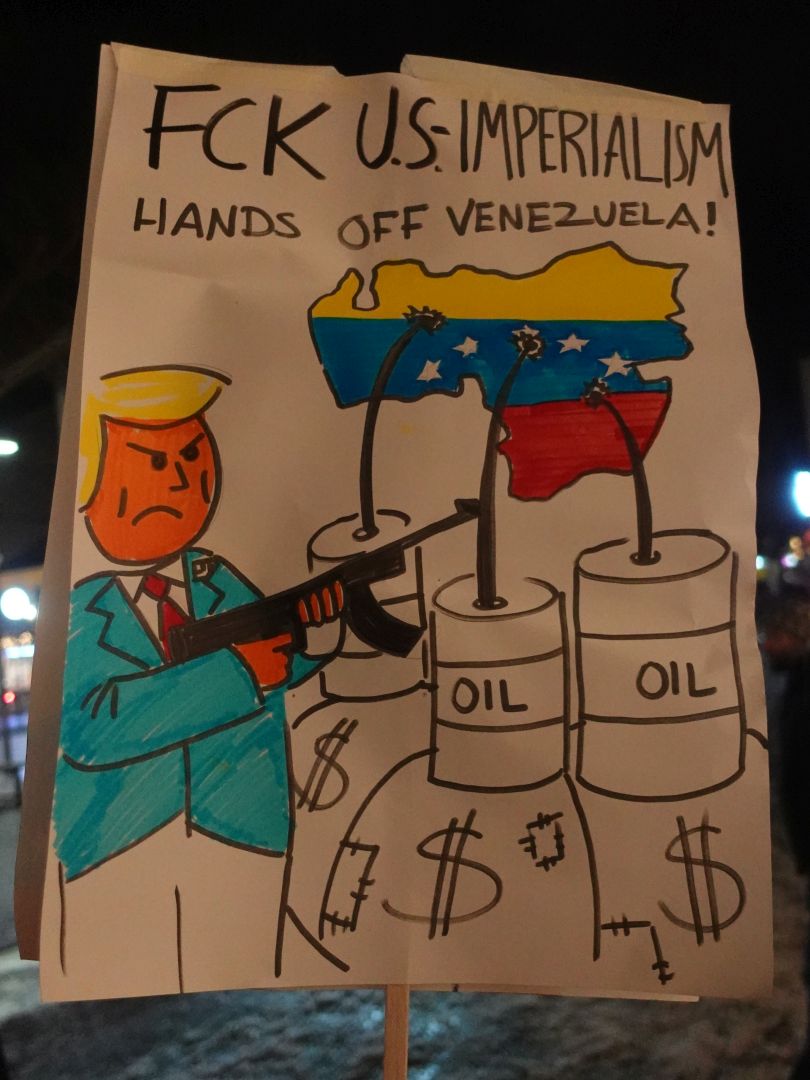 FCK U.S.-IMPERIALISM
HANDS OFF VENEZUELA!
OIL
OIL
$
$
$